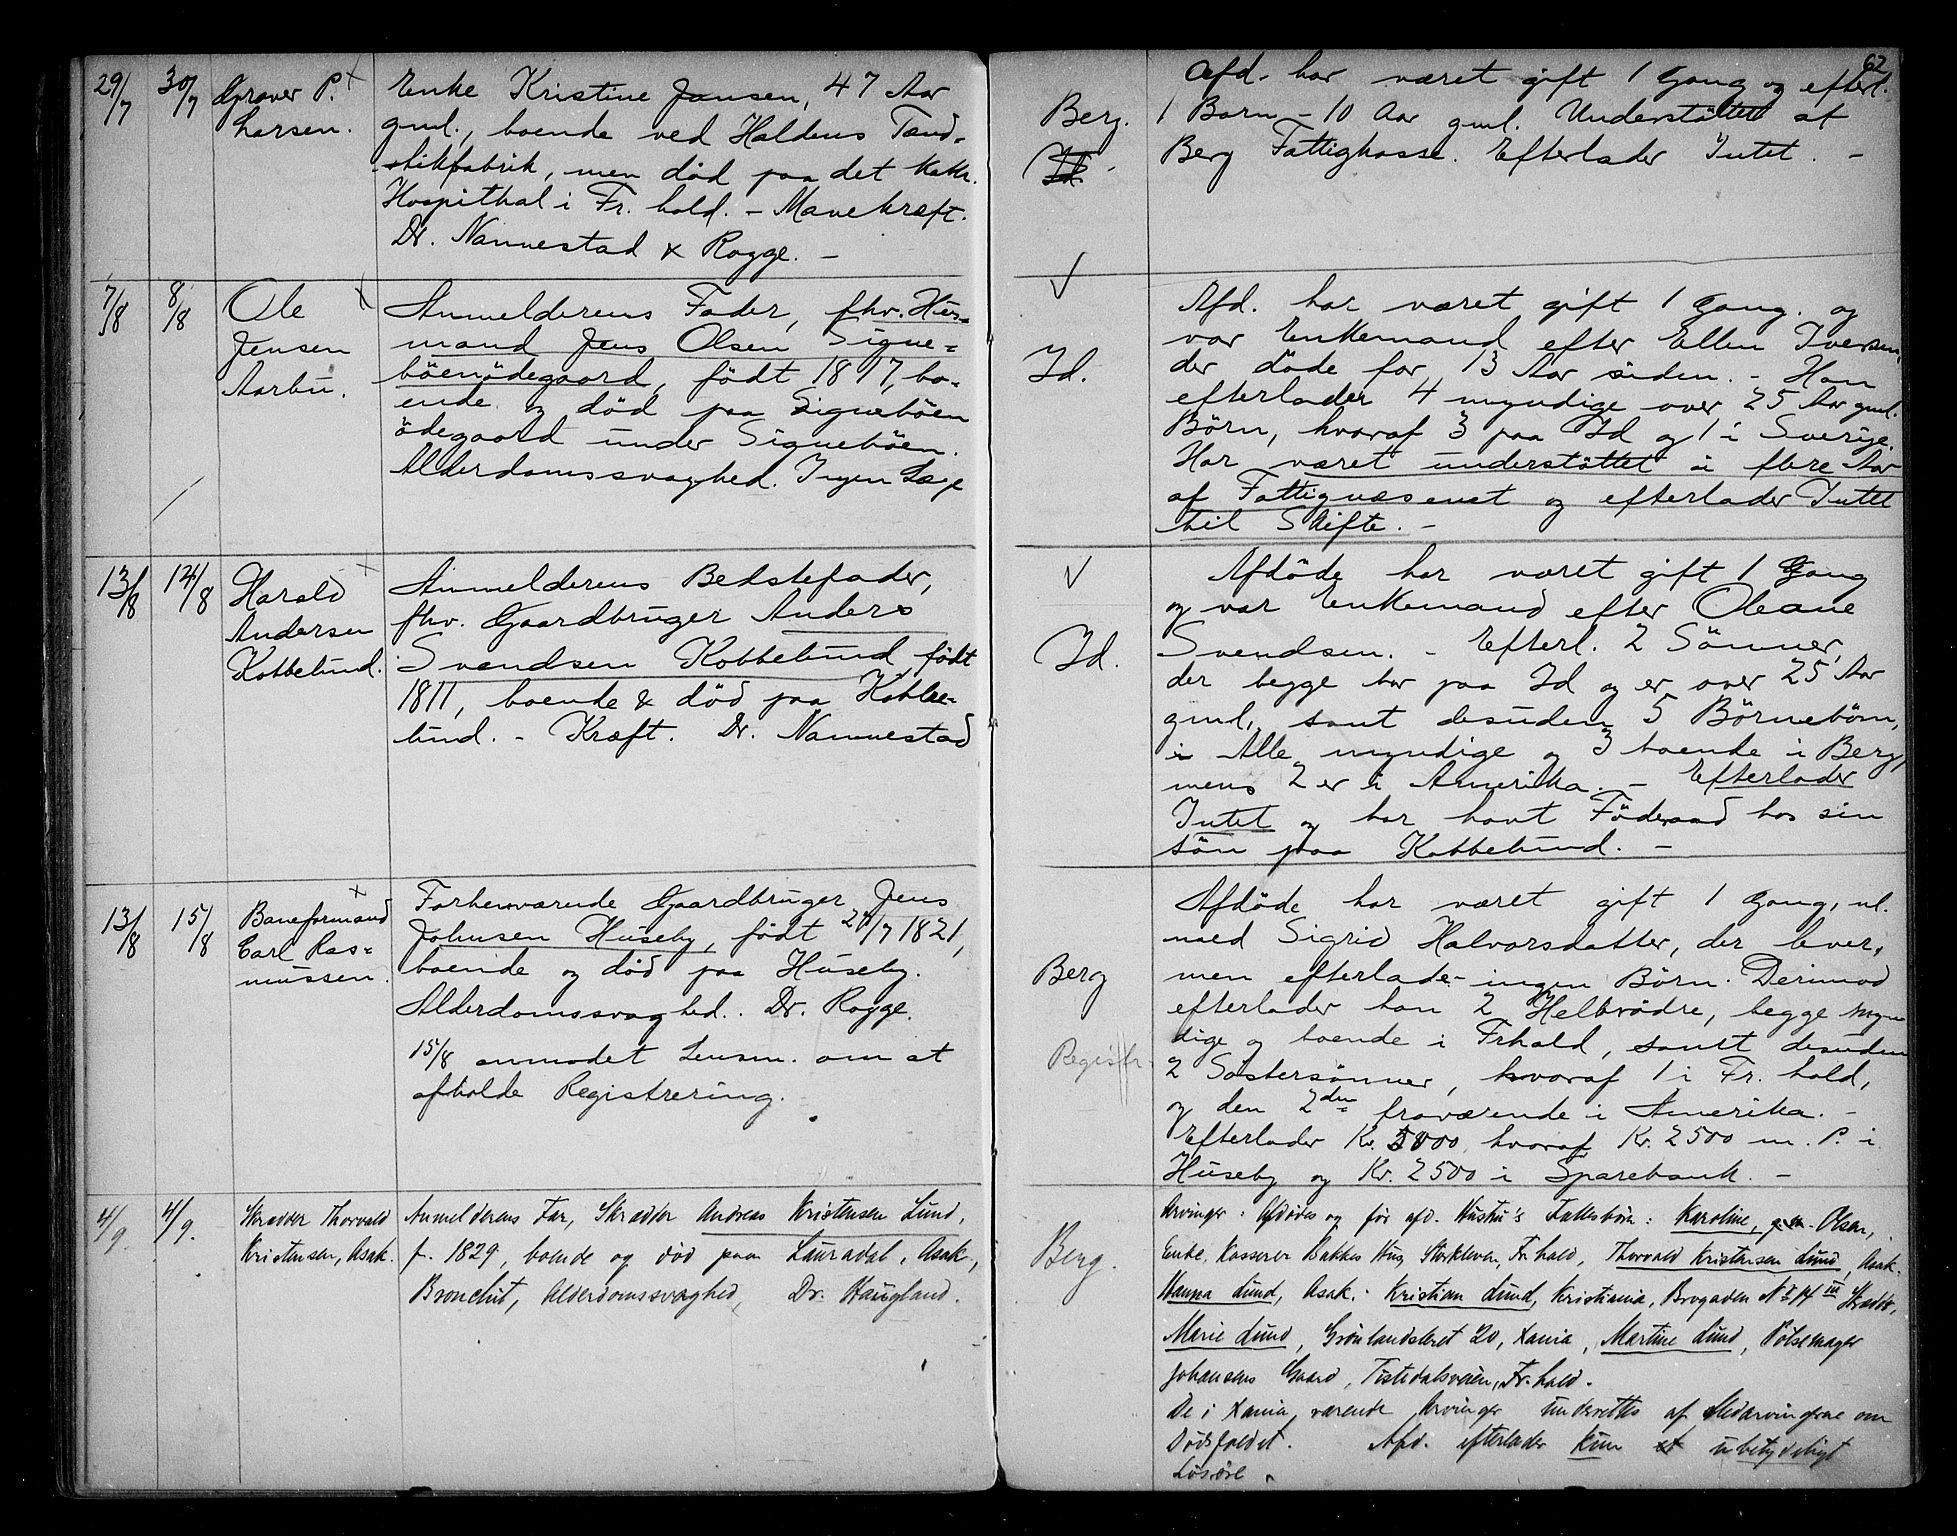 62
29/7 30/7 Graver P. Larsen.
Enke Kristine Jansen, 47 Aar
gml., boende ved Haldens Tænd-
stikfabrik, men död paa det kath.
Hospithal i Fr.hald. – Mavekræft.
Dr. Nannestad & Rogge. –
Berg.
Id.
Afd. har været gift 1 Gang og efterl.
1 Barn – 10 Aar gml. Understöttet af
Berg Fattigkasse. Efterlader Intet. –
7/8 8/8 Ole
Jensen
Aarbu.
Anmelderens Fader, fhv. Hus-
mand Jens Olsen Signe-
böenödegaard, födt 1817, bo-
ende og död paa Signeböen
ödegaard under Signeböen.
Alderdomssvaghed. Ingen Læge
Id.
Afd. har været gift 1 Gang. og
var Enkemand efter Ellen Iversen,
der döde for 13 Aar siden. – Han
efterlader 4 myndige over 25 Aar gml.
Börn, hvoraf 3 paa Id og 1 i Sverige.
Har været understöttet i flere Aar
af Fattigvæsenet og efterlader Intet
til Skifte. –
13/8 14/8 Harald
Andersen
Kobbelund.
Anmelderens Bedstefader,
fhv. Gaardbruger Anders
Svendsen Kobbelund, födt
1811, boende & död paa Kobbe-
lund. – Kræft. Dr. Nannestad
Id.
Afdöde har været gift 1 Gang
og var Enkemand efter Oleane
Svendsen. – Efterl. 2 Sönner,
der begge bor paa Id og er over 25 Aar
gml., samt desuden 5 Börnebörn,
Alle myndige og 3 boende i Berg,
mens 2 er i Amerika. – Efterlader
Intet og har havt Föderaad hos sin
sön paa Kobbelund. –
13/8 15/8 Baneformand
Carl Ras-
mussen.
Forhenværende Gaardbruger Jens
Johnsen Huseby, födt 24/7 1821,
boende og död paa Huseby.
Alderdomssvaghed. Dr. Rogge.
15/8 anmodet Lensm. om at
afholde Registrering.
Berg
Registr.
Afdöde har været gift 1 Gang, nl.
med Sigrid Halvorsdatter, der lever,
men efterlader ingen Börn. Derimod
efterlader han 2 Helbrödre, begge myn
dige og boende i Frhald, samt desuden
2 Söstersönner, hvoraf 1 i Fr.hald,
og den 2den fraværende i Amerika. –
Efterlader Kr. 5000, hvoraf Kr. 2500 m. P. i
Huseby og Kr. 2500 i Sparebank. –
4/9 4/9. Skrædder Thorvald
Kristensen, Asak.
Anmelderens Far, Skrædder Andreas Kristensen Lund,
f. 1829, boende og död paa Lauradal, Asak,
Bronchit, Alderdomssvaghed, Dr. Haugland.
Berg.
Arvinger: Afdödes og för afd. Hustru's Fællesbörn: Karoline, Olsen,
Enke, Kasserer Bakkes Hus, Fr.hald, Thorvald Kristensen Lund, Asak.
Hanna Lund, Asak. Kristian Lund, Kristiania, Brogaden No 14 III
Marie Lund, Grönlandsleret 20, Xania, Martine Lund, Pölsemager
Johansens Gaard, Tistedalsveien, Fr.hald.
De i Xania værende Arvinger underrettes af Medarvingerne om
Dödsfaldet. Afd. efterlader kun ubetydeligt
Lösöre.